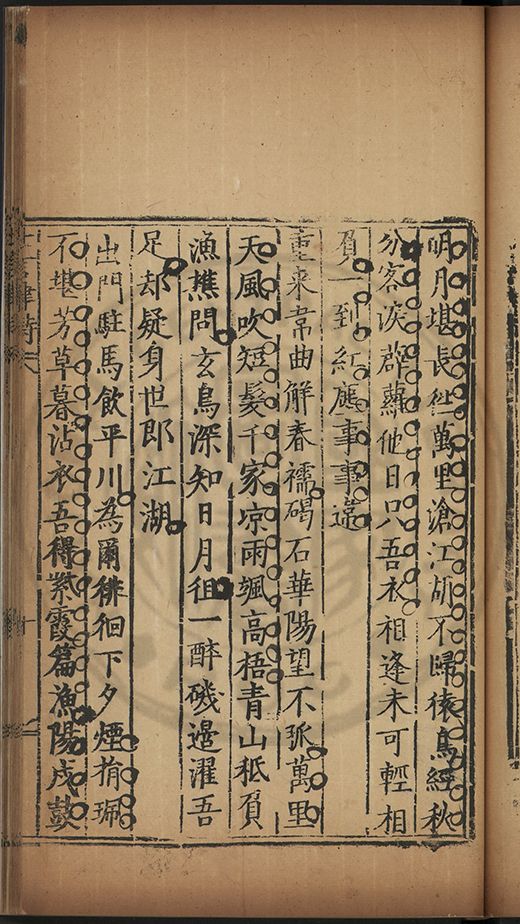 明月堪長萬里滄江胡不歸猿鳥經秋
分客淚薜蘿他日只吾衣相逢未可輕相
負一到紅塵事事違
重來韋曲解春襦碣石華陽望不孤萬里
天風吹短髮千家凉雨颯高梧青山秪負
漁樵問玄鳥深知日月徂一醉磯邊濯吾
足却疑身世郎江湖
出門駐馬飲平川為爾徘徊下夕煙捐珮
不堪芳草暮沾衣吾得紫霞篇漁陽戍鼓
言律詩